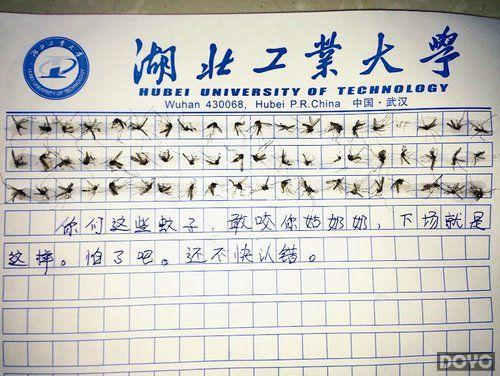 湖北工業大學
HUBEI UNIVERSITY OF TECHNOLOGY
Wuhan 430068, Hubei P.R.China 中国·武汉
你们这些蚊子，敢咬你姑奶奶，下场就是
这样。怕了吧。还不快认错。
DOYO